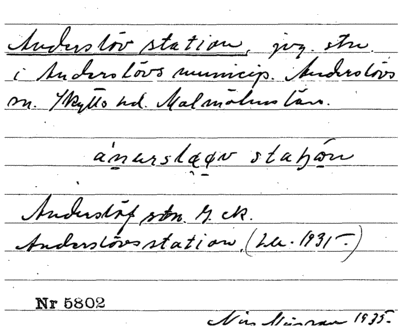 Anderslöv station, jvg. stn.
i Anderslövs municip. Anderslövs
sn. Skytts hd. Malmöhus län.
station
Anderslöf stn. G. ek.
Anderslövs station. (1931-)
Nr 5802
Nils 1935.